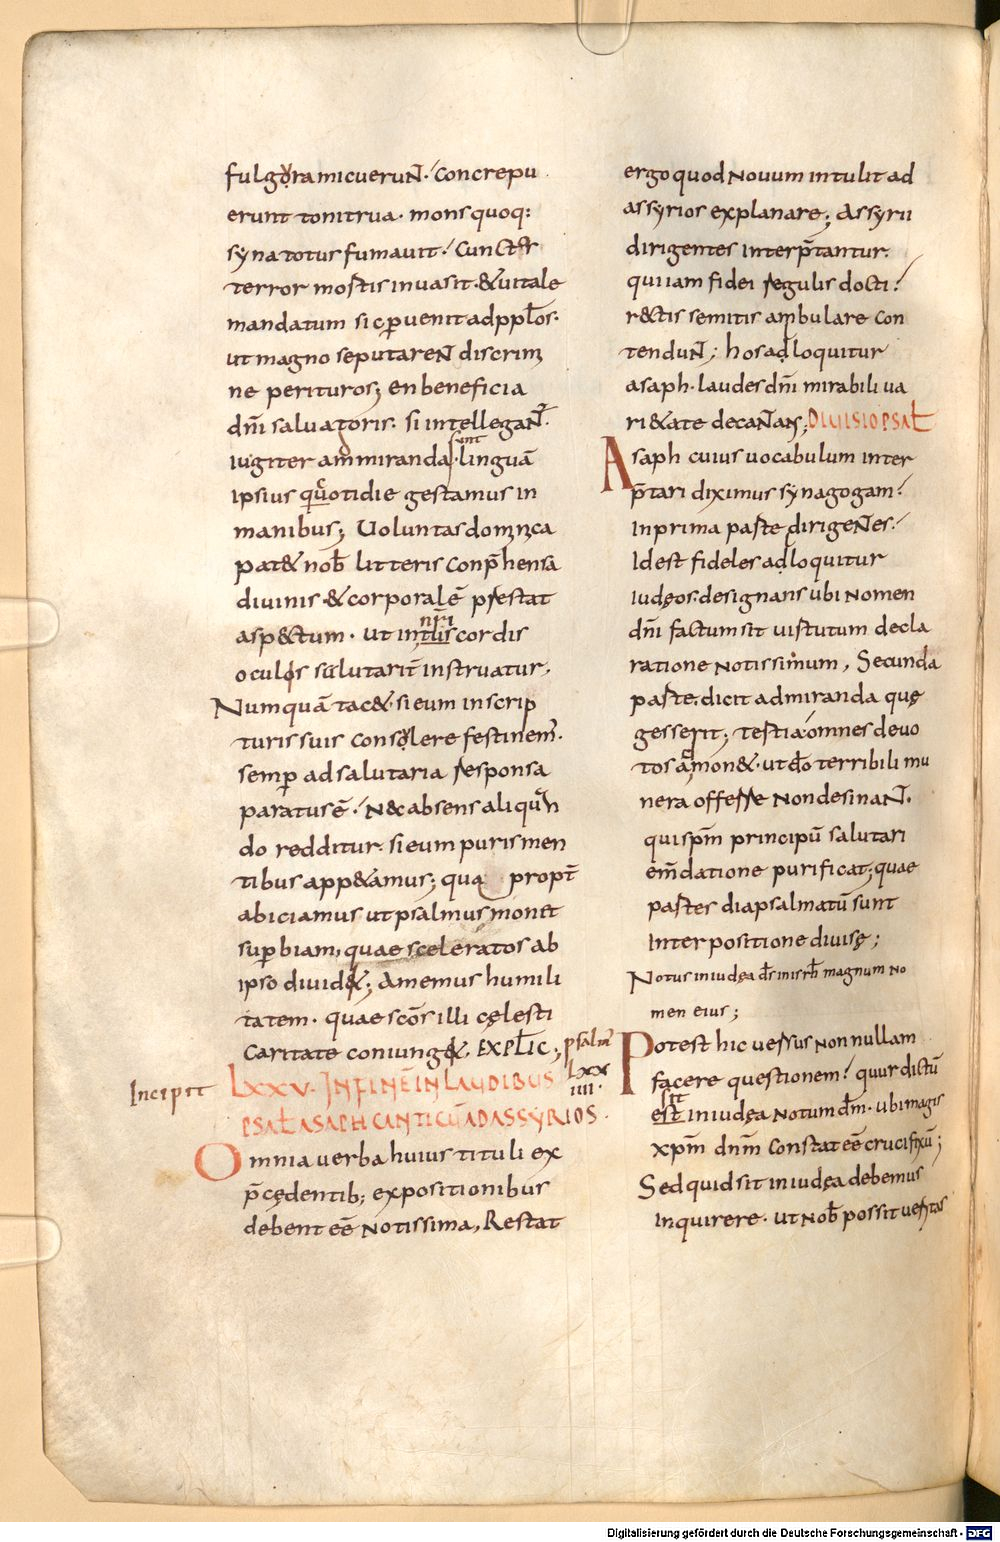 fulgora micueruN. Concrepu
erunt tonitrua. mons quoq:
syna totus fumauit. Cunctos
terror mostis inuasit. & uitale
mandatum sic puenit ad pplos.
ut magno se putareN discrimi
ne perituros; en beneficia
dñi saluatoris. si intellegaNt.
iugiter ammiranda sunt. linguã
ipsius quotidie gestamus in
manibus; Uoluntas dominica
pat& nob litteris conphensa
diuinis. & corporalẽ prestat
aspectum. ut intus nri cordis
oculos salutarit instruatur,
Numquã tac& si eum in scrip
turis suis consolere festinem.
semp ad salutaria responsa
paratus ẽ. Nec absens aliquan
do redditur. si eum puris men
tibus app&amus; qua propt
abiciamus ut psalmus monet
supbiam, quae sceleratos ab
ipso diuid&; Amemus humili
tatem. quae scos illi cęlesti
caritate coniung&. EXPLIC; psalm
LXX
IIII.
Incipit LXXV. IN FINẼ IN LAUDIBUS
PSAL ASAPH CANTICU AD ASSYRIOS.
Omnia uerba huius tituli ex
pcędentib; expositionibus
debent eẽ Notissima, Restat
ergo quod Nouum intulit ad
assyrios explanare; Assyrii
dirigentes interptantur.
qui iam fidei regulis docti.
rectis semitis ambulare con
tenduN; hos adloquitur
asaph. laudes dñi mirabili ua
ri&ate decaNans; DIUISIO PSAL
Asaph cuius uocabulum inter
ptari diximus synagogam.
In prima parte dirigeNes.
Id est fideles adloquitur
iudęos. designans ubi nomen
dñi factum sit uirtutum decla
ratione Notissimum, Secunda
parte. dicit admiranda quę
gesserit; tertia omnes deuo
tos amon&. ut do terribili mu
nera offerre Non desinaN.
qui spm principu salutari
emdatione purificat; quae
partes diapsalmatũ sunt
Interpositione diuisę;
Notus in iudęa ds in isrl magnum no
men eius;
Potest hic uersus Non nullam
facere questionem. quur dictũ
sit
est in iudęa Notum dm. ubi magis
xpm dnm Constat eẽ crucifixũ;
Sed quid sit in iudęa debemus
Inquirere. ut Nob possit ueritas
Digitalisierung gefördert durch die Deutsche Forschungsgemeinschaft - DFG